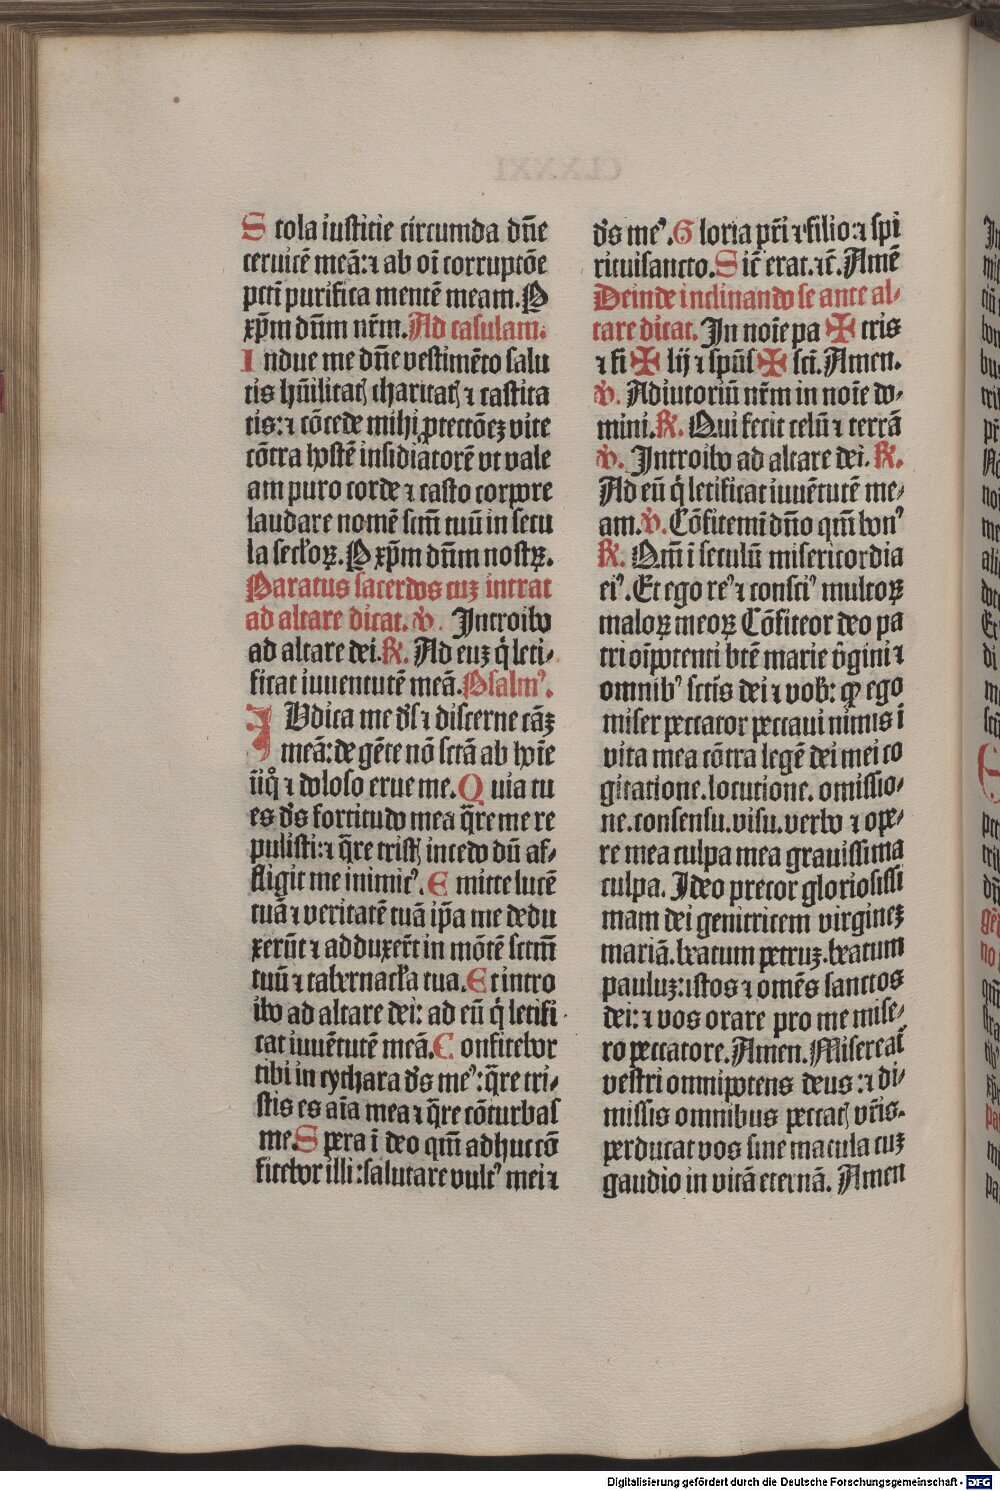 Stola iusticie circumda dñe
ceruicē meā: ⁊ ab oī corruptōe
pctī purifica mentē meam. P
xp̄m dn̄m nr̄m. Ad casulam.
Indue me dn̄e vestimēto salu
tis hūilitatꝭ charitatꝭ ⁊ castita
tis: ⁊ cōcede mihi ꝓtectōeꝫ vite
cōtra hostē insidiatorē vt vale
am puro corde ⁊ casto corpore
laudare nomē scm̄ tuū in secu
la secl'oꝝ. P xp̄m dn̄m nostꝝ.
Paratus sacerdos cuꝫ intrat
ad altare dicat. ℣. Introibo
ad altare dei. ℟. Ad euꝫ q̇ leti-
ficat iuuentutē meā. Psalmꝰ.
IVdica me ds̄ ⁊ discerne cāꝫ
meā: de gēte nō sctā ab hoīe
iīq̊ ⁊ doloso erue me. Quia tu
es ds̄ fortitudo mea q̄re me re
pulisti: ⁊ q̄re tristꝭ incedo dū af-
fligit me inimicꝰ. Emitte lucē
tuā ⁊ veritatē tuā ip̄a me dedu
xerūt ⁊ adduxer̄t in mōtē sctm̄
tuū ⁊ tabernacl'a tua. Et intro
ibo ad altare dei: ad eū q̇ letifi
cat iuuētutē meā. Confitebor
tibi in cythara ds̄ meꝰ: q̄re tri-
stis es aīa mea ⁊ q̄re cōturbas
me. Spera ī deo qm̄ adhuc cō
fitebor illi: salutare vultꝰ mei ⁊
ds̄ meꝰ. Gloria pr̄i ⁊ filio: ⁊ spi
rituisancto. Sic̄ erat. ⁊c̄. Amē
Deinde inclinando se ante al-
tare dicat. In noīe pa ✠ tris
⁊ fi ✠ lij ⁊ spūs ✠ sci. Amen.
℣. Adiutoriū nr̄m in noīe do-
mini. ℟. Qui fecit celū ⁊ terrā
℣. Introibo ad altare dei. ℟.
Ad eū q̇ letificat iuuētutē me-
am. ℣. Cōfitemī dn̄o qm̄ bonꝰ
℟. Qm̄ ī seculū misericordia
eiꝰ. Et ego reꝰ ⁊ consciꝰ multoꝝ
maloꝝ meoꝝ Cōfiteor deo pa
tri oīpotenti btē marie v̄gini ⁊
omnibꝰ sctīs dei ⁊ vob̄: ꝙ ego
miser peccator peccaui nimis ī
vita mea cōtra legē dei mei co
gitatione. locutione. omissio-
ne. consensu. visu. verbo ⁊ ope-
re mea culpa mea grauissima
culpa. Ideo precor gloriosissi
mam dei genitricem virgineꝫ
mariā. beatum petruꝫ. beatum
pauluꝫ: istos ⁊ omēs sanctos
dei: ⁊ vos orare pro me mise-
ro peccatore. Amen. Misereat̄
vestri omnipotens deus: ⁊ di-
missis omnibus peccatꝭ vr̄is.
perducat vos sine macula cuꝫ
gaudio in vitā eternā. Amen
Digitalisierung gefördert durch die Deutsche Forschungsgemeinschaft - DFG